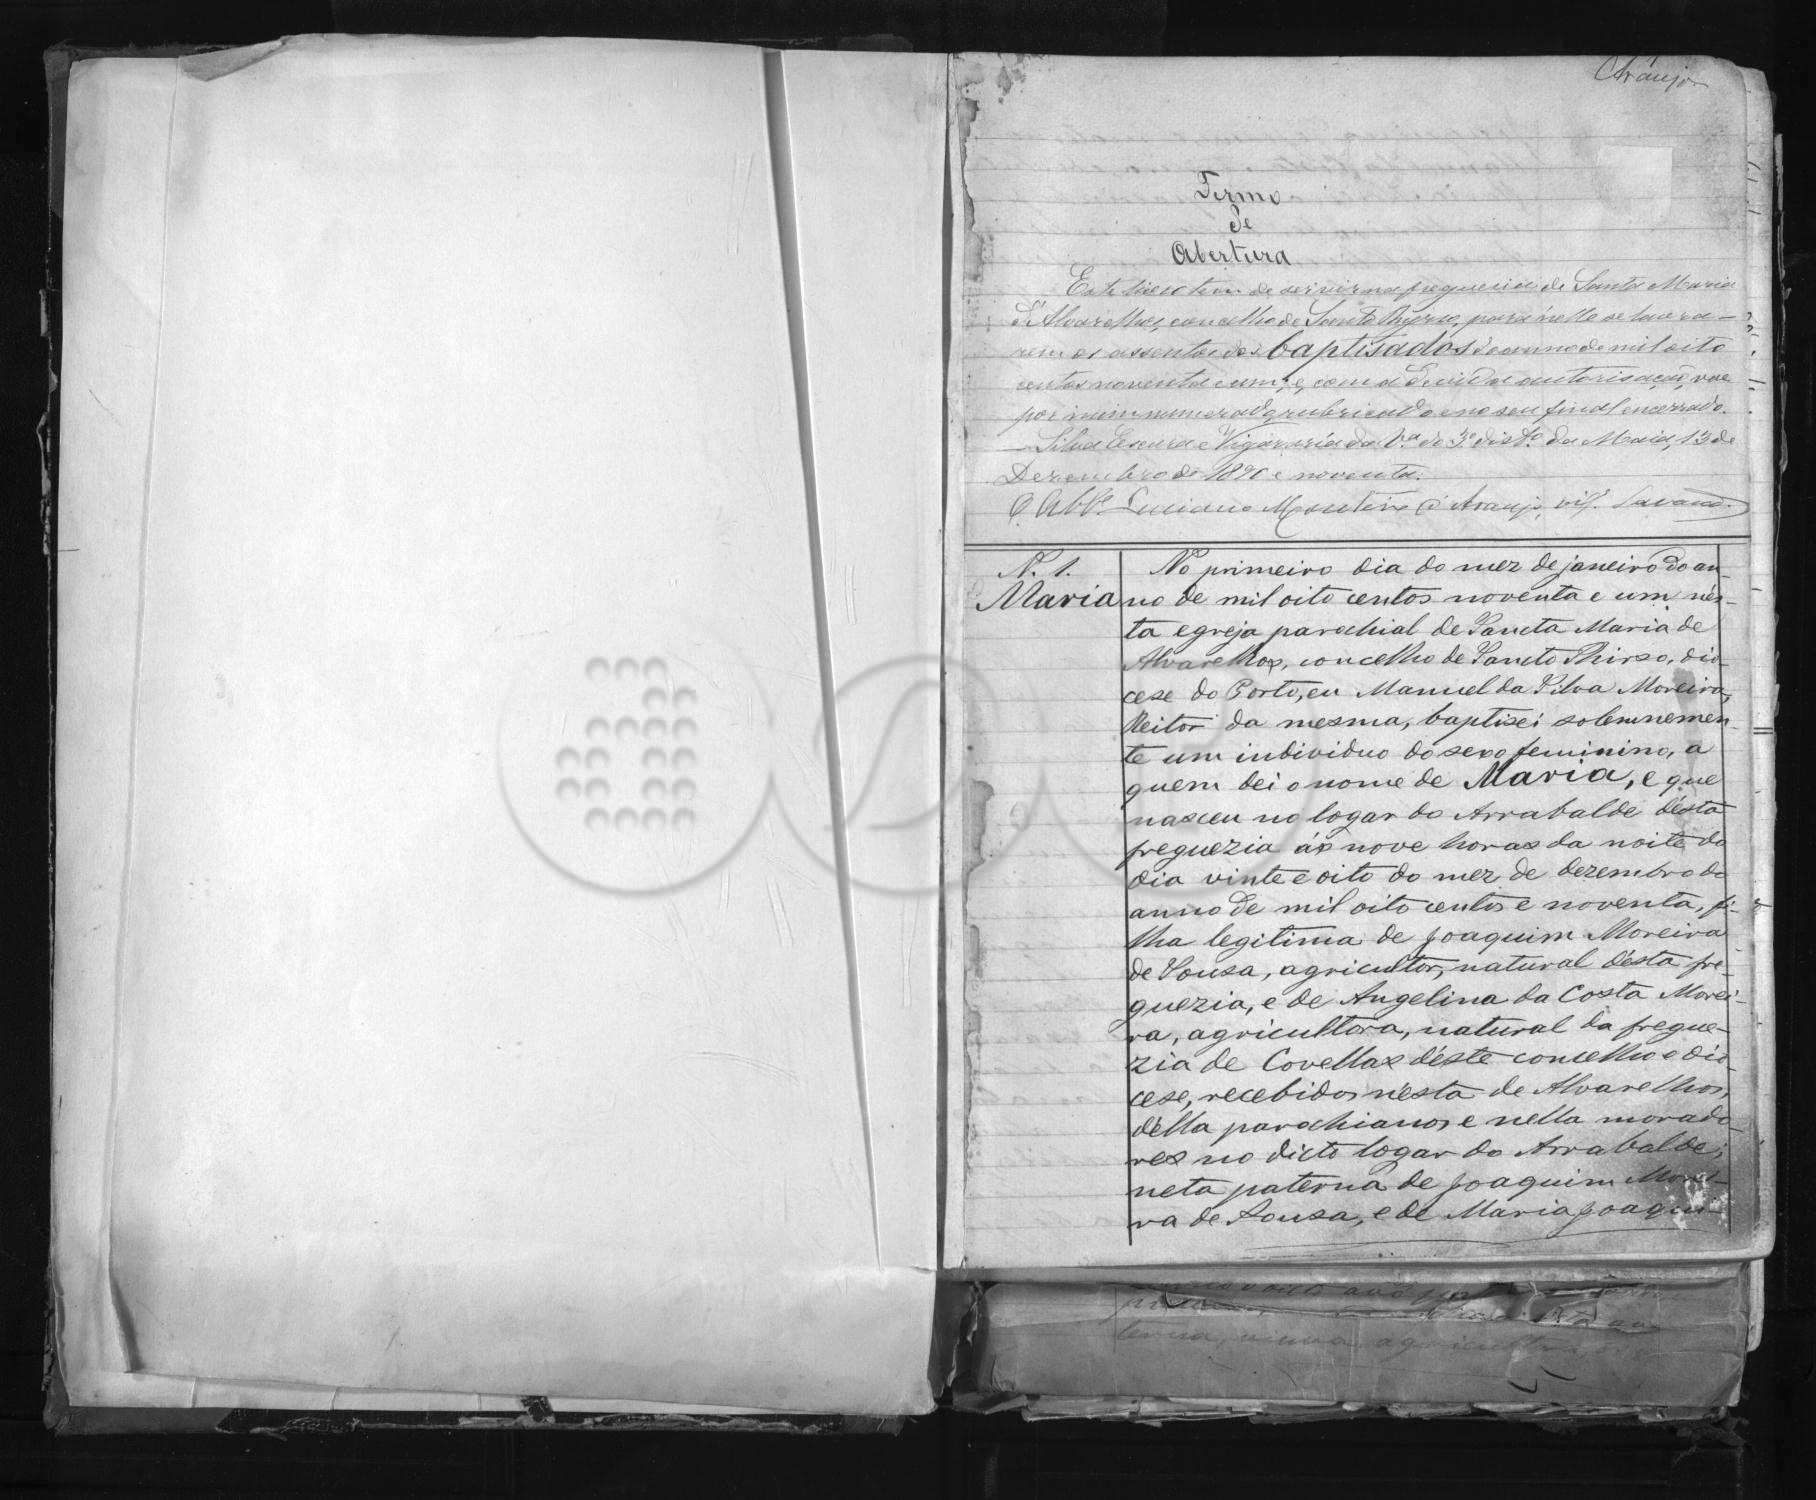 Araujo
Termo
de
Abertura
Este livro tem de servir na freguezia de Santa Maria
d'Alvarelhos, concelho de Santo Thyrso, para n'elle se lavra-
rem os assentos dos baptisados do anno de mil oito
centos noventa e um; e, com a devida autorisação, vae
por mim numerado, rubricado e no seu final encerrado.
Silva Escura e Vigararia da Va do 3o disto da Maia, 13 de
Dezembro de 1890 e noventa.
O Abbe Luciano Monteiro d'Araujo, vig.
N. 1.
Maria
No primeiro dia do mez de janeiro do an-
no de mil oito centos noventa e um nes-
ta egreja parochial de Sancta Maria de
Alvarelhos, concelho de Sancto Thirso, dio-
cese do Porto, eu Manuel da Silva Moreira,
Reitor da mesma, baptisei solemnemen-
te um individuo do sexo feminino, a
quem dei o nome de Maria, e que
nasceu no logar do Arrabalde d'esta
freguezia ás nove horas da noite do
dia vinte e oito do mez de dezembro do
anno de mil oito centos e noventa, fi-
lha legitima de Joaquim Moreira
de Sousa, agricultor, natural d'esta fre-
guezia, e de Angelina da Costa Morei-
ra, agricultora, natural da fregue-
zia de Covellas d'este concelho e dio-
cese, recebidos n'esta de Alvarelhos,
d'ella parochianos e nella morado-
res no dicto logar do Arrabalde;
neta paterna de Joaquim Morei-
ra de Sousa, e de Maria Joaqui-
terna, viuva, agricult